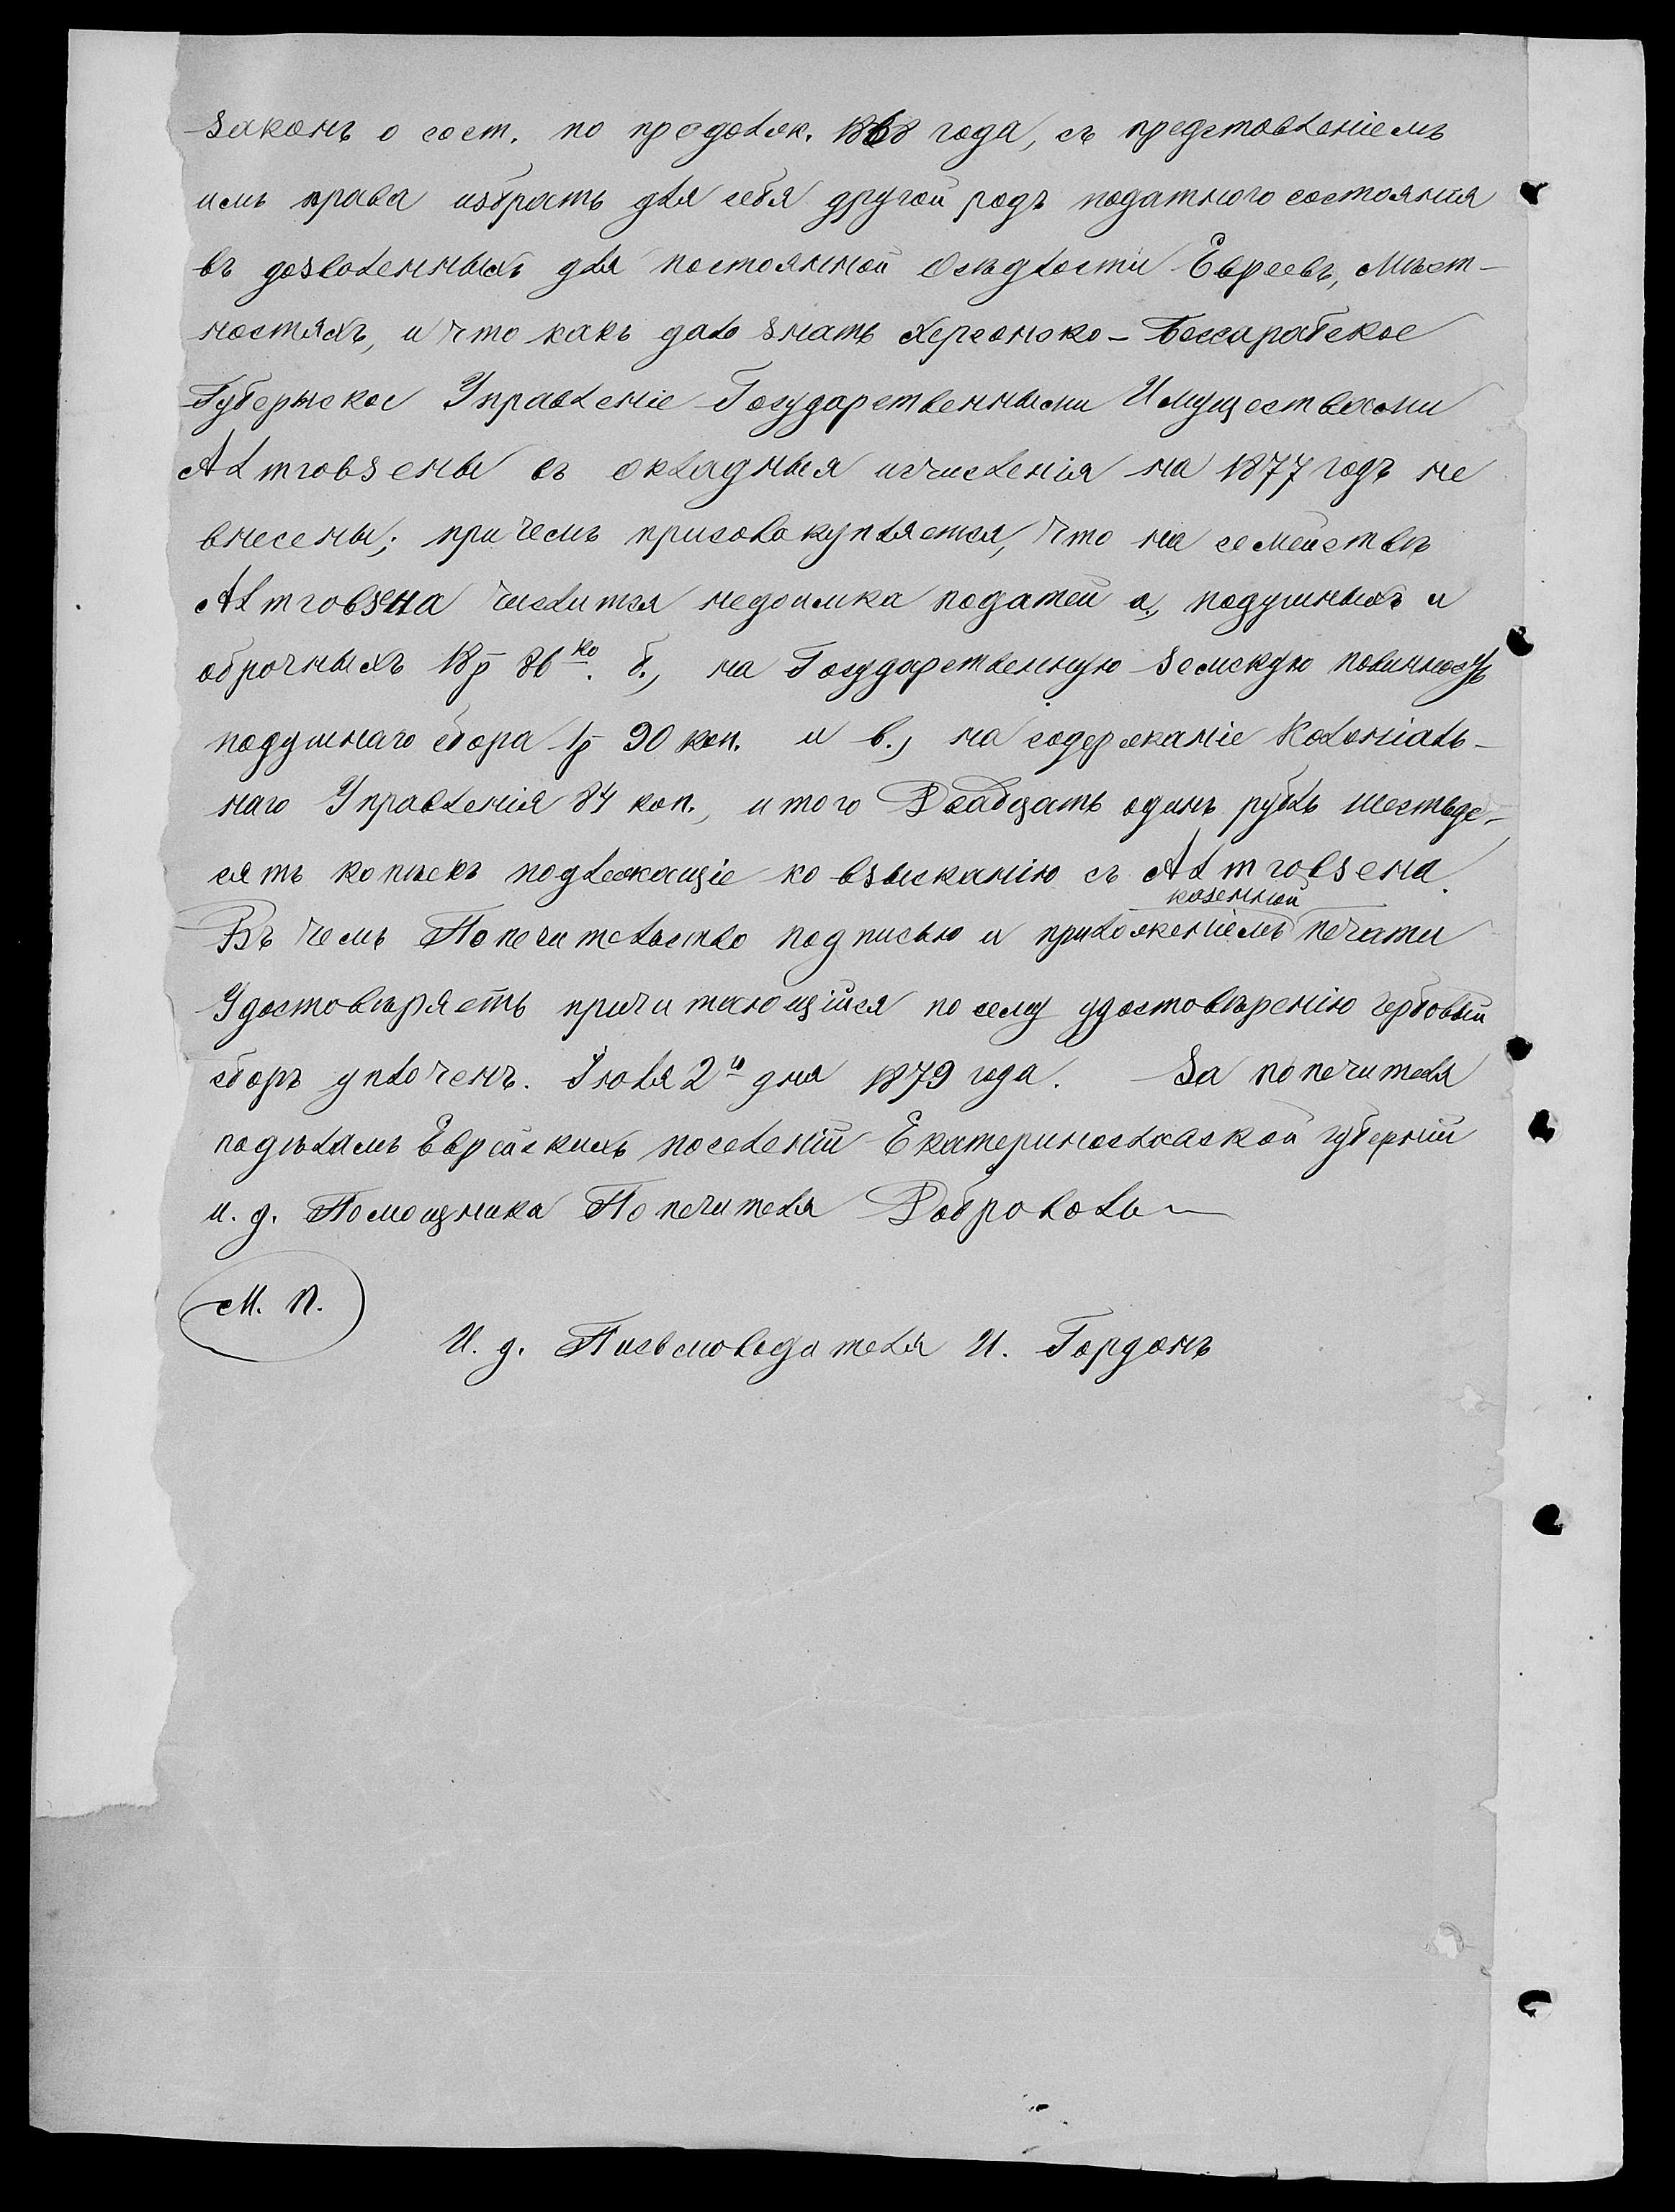 законъ о сост. по продолж. 1868 года, съ предстовленіемъ
имъ права избрать для себя другой родъ податного состоянія
въ дозволенныхъ для постоянной Осѣдлости Евреевъ, Мѣст-
ностяхъ, и что какъ дало знать Херсонско-Бессарабское
Губернское Управленіе Государственными Имуществами
Алтговзены въ окладныя исчисленія на 1877 годъ не
внесены; при чемъ присовокупляется, что на семействѣ
Алтговзена числится недоимка податей а., подушныхъ и
оброчныхъ 18р 86 ко. б., на Государственную земскую повинность
подушнаго сбора 1р 90 коп. и в., на содержаніе Колоніаль-
наго Управленія 84 коп., итого Двадцать одинъ рубль шестьде-
сять копѣекъ подлежащіе ко взысканію съ Алтговзена.
казенной
Въ чемъ Попечительство подписью и приложеніемъ печати
Удостовѣряетъ причитающійся по сему удостовѣренію гербовый
сборъ уплоченъ. Іюля 2го дня 1879 года. За попечителя
по дѣламъ Еврейскихъ поселеній Екатеринославской губерніи
и. д. Помощника Попечителя Доброволь—
М. П.
И. д. Письмоводителя И. Гордонъ